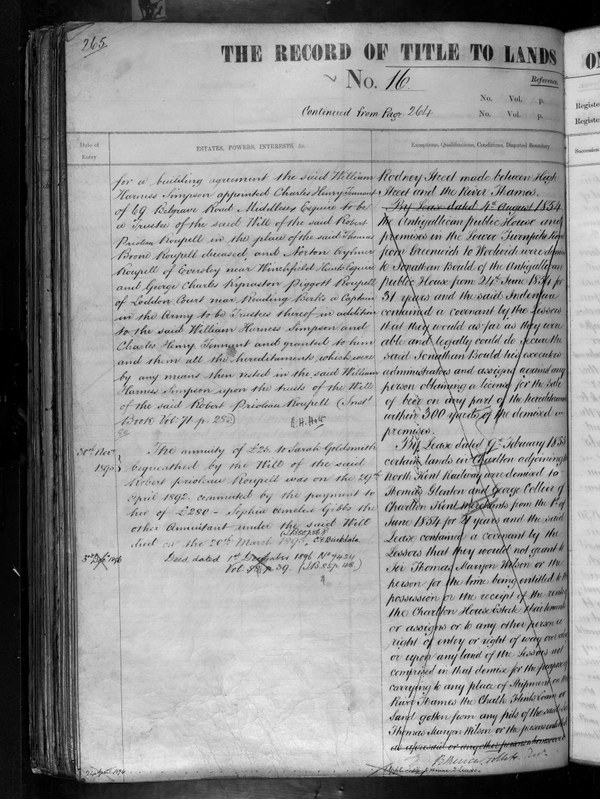 265.
THE RECORD OF TITLE TO LANDS
No. 16.
Reference.
No. Vol. p.
Continued from Page 264
No. Vol. p.
Date of Entry
ESTATES, POWERS, INTERESTS, &c.
Exceptions, Qualifications, Conditions, Disputed Boundary
for a building agreement the said William
Harness Simpson appointed Charles Henry Tennant
of 69 Belgrave Road Middlesex Esquire to be
a Trustee of the said Will of the said Robert
Prioleau Roupell in the place of the said Thomas
Boone Roupell deceased, and Norton Aylmer
Roupell of Eversley near Winchfield Hants Esquire
and George Charles Kynaston Piggott Roupell
of Loddon Court near Reading Berks a Captain
in the Army to be Trustees thereof in addition
to the said William Harness Simpson and
Charles Henry Tennant and granted to him
and them all the hereditaments which were
by any means then vested in the said William
Harness Simpson upon the trusts of the Will
of the said Robert Prioleau Roupell (Inst.
Book Vol. 71 p.
30th Nov.
1895
The annuity of £25 to Sarah Goldsmith
bequeathed by the Will of the said
Robert prioleau Roupell was on the 29th
April 1892 commuted by the payment to
her of £280 — Sophia Amelia Gibbs the
other Annuitant under the said Will
died on the 20th March 1895.
1896
Deed dated 1st December 1896 No. 7424
Vol. p. 39. (I.B. 85 p. 48)
Rodney Street made between High
Street and the River Thames.
By Lease dated 4th August 1854
the Antigallican public House and
premises in the Lower Turnpike Road
from Greenwich to Woolwich were demised
to Jonathan Bould of the Antigallican
public House from 24th June 1854 for
31 years and the said Indenture
contained a covenant by the Lessors
that they would as far as they were
able and legally could do secure the
said Jonathan Bould his executors
administrators and assigns against any
person obtaining a license for the sale
of beer on any part of the hereditaments
within 300 yards of the demised
premises.
By Lease dated 9th February 1855
certain lands in Charlton adjoining the
North Kent Railway were demised to
Thomas Glenton and George Collier of
Charlton Kent Merchants from the 1st of
June 1854 for 21 years and the said
Lease contained a covenant by the
Lessors that they would not grant to
Sir Thomas Maryon Wilson or the
person for the time being entitled to the
possession or the receipt of the rents of
the Charlton House Estate
or assigns or to any other person a
right of entry or right of way over
or upon any land of the Lessors not
comprised in that demise for the purpose of
carrying to any place of Shipment on the
River Thames the Chalk Flints Loam or
Sand gotten from any pits of the said Sir
Thomas Maryon Wilson or the person entitled
as aforesaid or any other person whomsoever